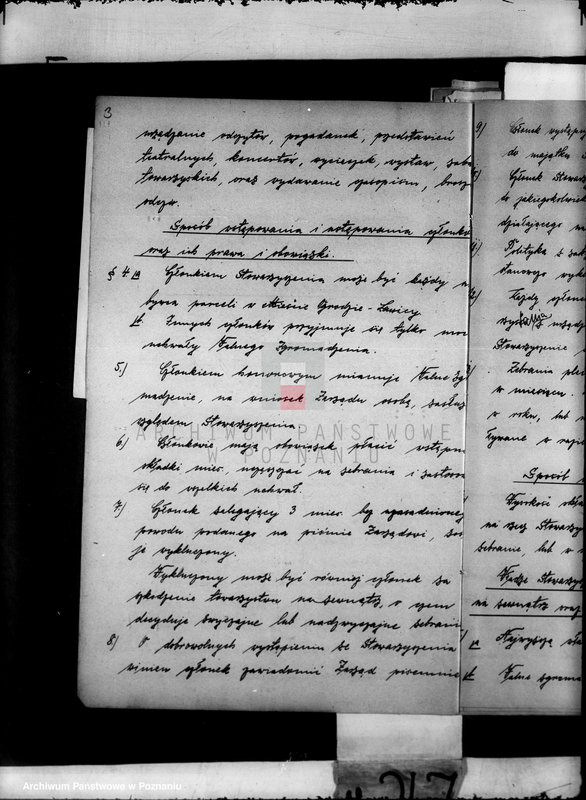 3
urządzanie odczytów, pogadanek, przedstawień
teatralnych, koncertów, wycieczek, wystaw, zabaw
towarzyskich, oraz wydawanie czasopism, brosz
odezw.
Sposób wstępowania i ustępowania członków
oraz ich prawa i obowiązki.
§ 4 a Członkiem Stowarzyszenia może być każdy n
bywca parceli w Mieście Grodzie-Ławicy
b. Innych członków przyjmuje się tylko moc
uchwały Walnego Zgromadzenia.
5.) Członkiem honorowym mianuje Walne Zg
madzenie, na wniosek Zarządu osobę, zasłuż
względem Stowarzyszenia
6) Członkowie mają obowiązek płacić wstępn
składki mies., uczęszczać na zebrania i zastosow
się do wszelkich uchwał.
7) Członek zalegający 3 mies. bez uzasadnionej
powodu podanego na piśmie Zarządowi, zos
je wykluczony.
Wykluczony może być również członek za
szkodzenie towarzystwu na zewnątrz, o czem
decyduje zwyczajne lub nadzwyczajne zebrani
8) O dobrowolnych wystąpieniu ze Stowarzyszenia
winien członek zawiadomić Zarząd piśmiennie
9) Członek występuj
do majątku S
Członek Stowarz
do jakiegokolwiek
działającego na
Polityka z zak
Każdy człon
Stowarzyszenie
Zebrania ple
w miesiącu.
w roku, lub n
Sposób
Wysokość skła
na rzecz Stowarzy
zebranie, lub w
Władze Stowarzy
na zewnątrz oraz
a Najwyższą wła
b Walne zgroma
ARCHIWUM PAŃSTWOWE
W POZNANIU
Archiwum Państwowe w Poznaniu